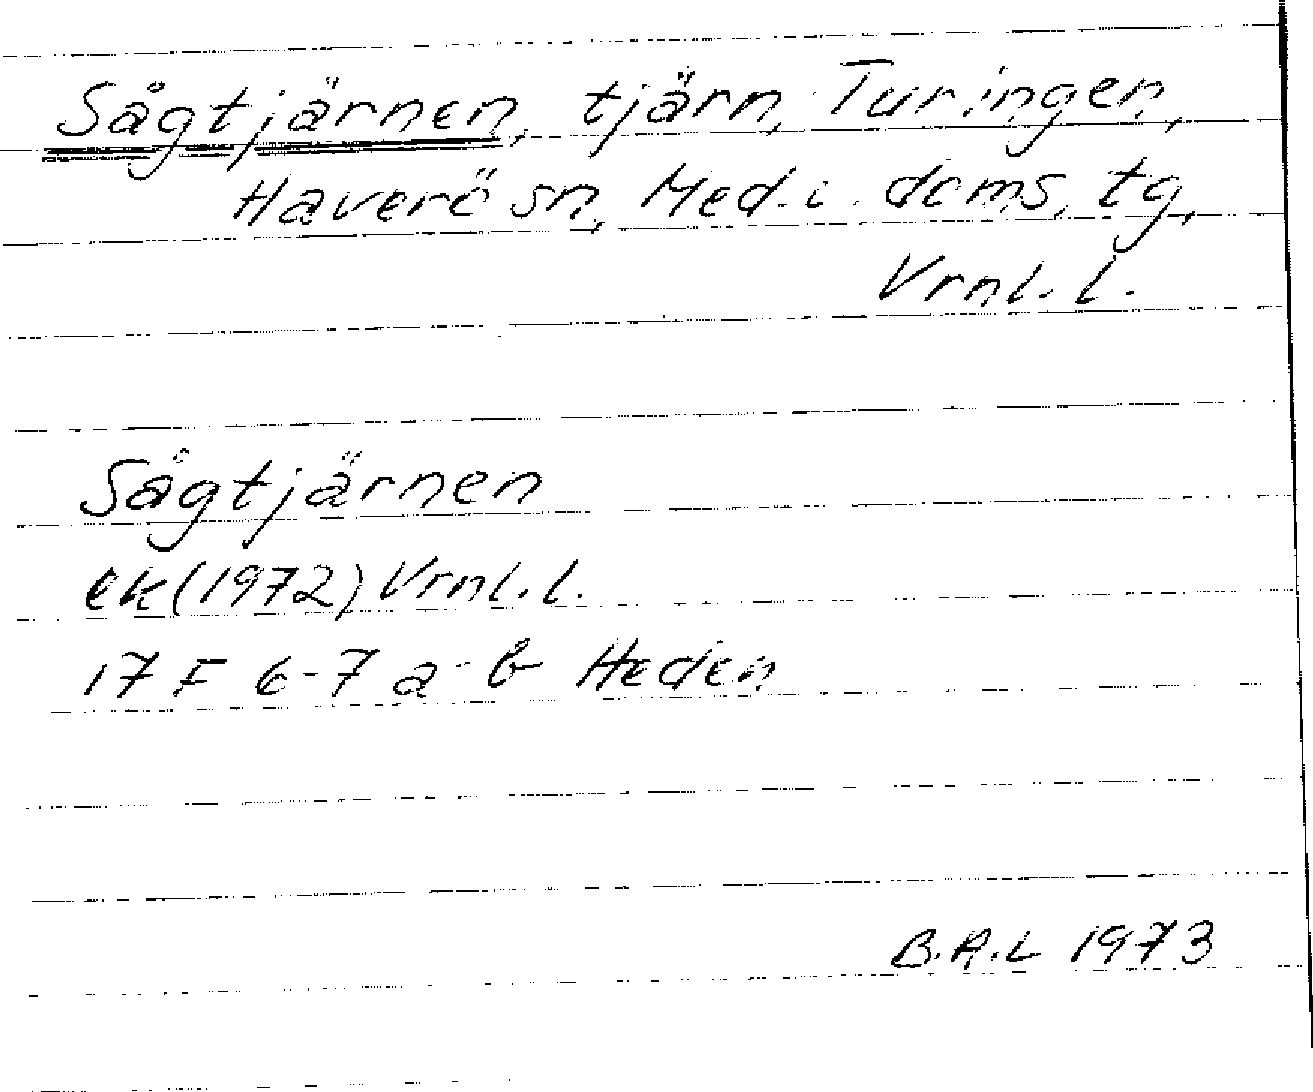 Sågtjärnen, tjärn, Turingen,
Haverö sn, Med. v. doms. tg,
Vrnl. l.
Sågtjärnen
ek (1972) Vrnl. l.
17 F 6-7 a-b Heden
B.A.L 1973